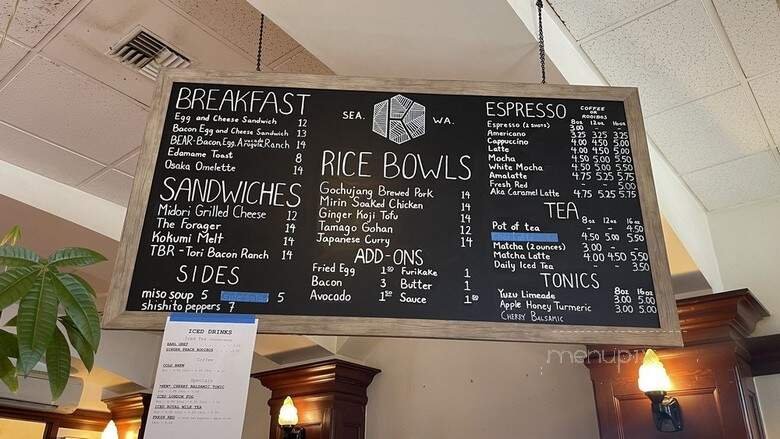 BREAKFAST
Egg and Cheese Sandwich 12
Bacon Egg and Cheese Sandwich 13
BEAR-Bacon, Egg, Avocado Arugula, Ranch 14
Edamame Toast 8
Osaka Omelette 14
SANDWICHES
Midori Grilled Cheese 12
The Forager 14
Kokumi Melt 14
TBR - Tori Bacon Ranch 14
SIDES
miso soup 5
5
shishito peppers 7
SEA. WA.
RICE BOWLS
Gochujang Brewed Pork 14
Mirin Soaked Chicken 14
Ginger Koji Tofu 14
Tamago Gohan 12
Japanese Curry 14
ADD-ONS
Fried Egg 1.50 Furikake 1
Bacon 3 Butter 1
Avocado 1.50 Sauce 1.50
ESPRESSO COFFEE OR ROOIBOS
8oz 12oz 16oz
Espresso (2 SHOTS) 3.00 - -
Americano 3.25 3.25 3.25
Cappuccino 4.00 4.50 5.00
Latte 4.00 4.50 5.00
Mocha 4.50 5.00 5.50
White Mocha 4.50 5.00 5.50
Amalatte 4.75 5.25 5.75
Fresh Red - - 5.00
Aka Caramel Latte 4.75 5.25 5.75
TEA 8oz 12oz 16oz
Pot of tea - - 4.50
4.50 5.00 5.50
Matcha (2 ounces) 3.00 - -
Matcha Latte 4.00 4.50 5.50
Daily Iced Tea - - 3.50
TONICS
8oz 16oz
Yuzu Limeade 3.00 5.00
Apple Honey Turmeric 3.00 5.00
Cherry Balsamic
ICED DRINKS
Iced Tea
EARL GREY
GINGER PEACH ROOIBOS
Coffee
COLD BREW
Specials
*NEW* CHERRY BALSAMIC TONIC
ICED LONDON FOG
ICED ROYAL MILK TEA
FRESH RED